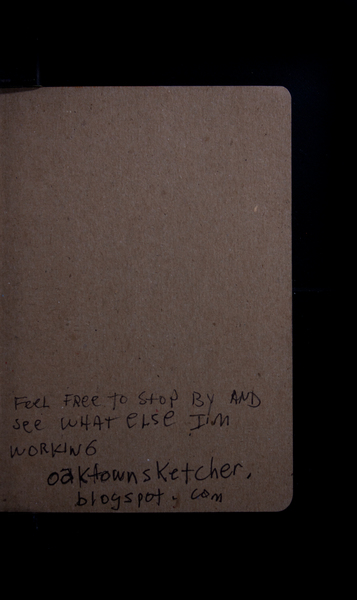 FEEL FREE TO STOP BY AND
See WHAT ELSE I'M
WORKING
oaktownsketcher.
blogspot. com